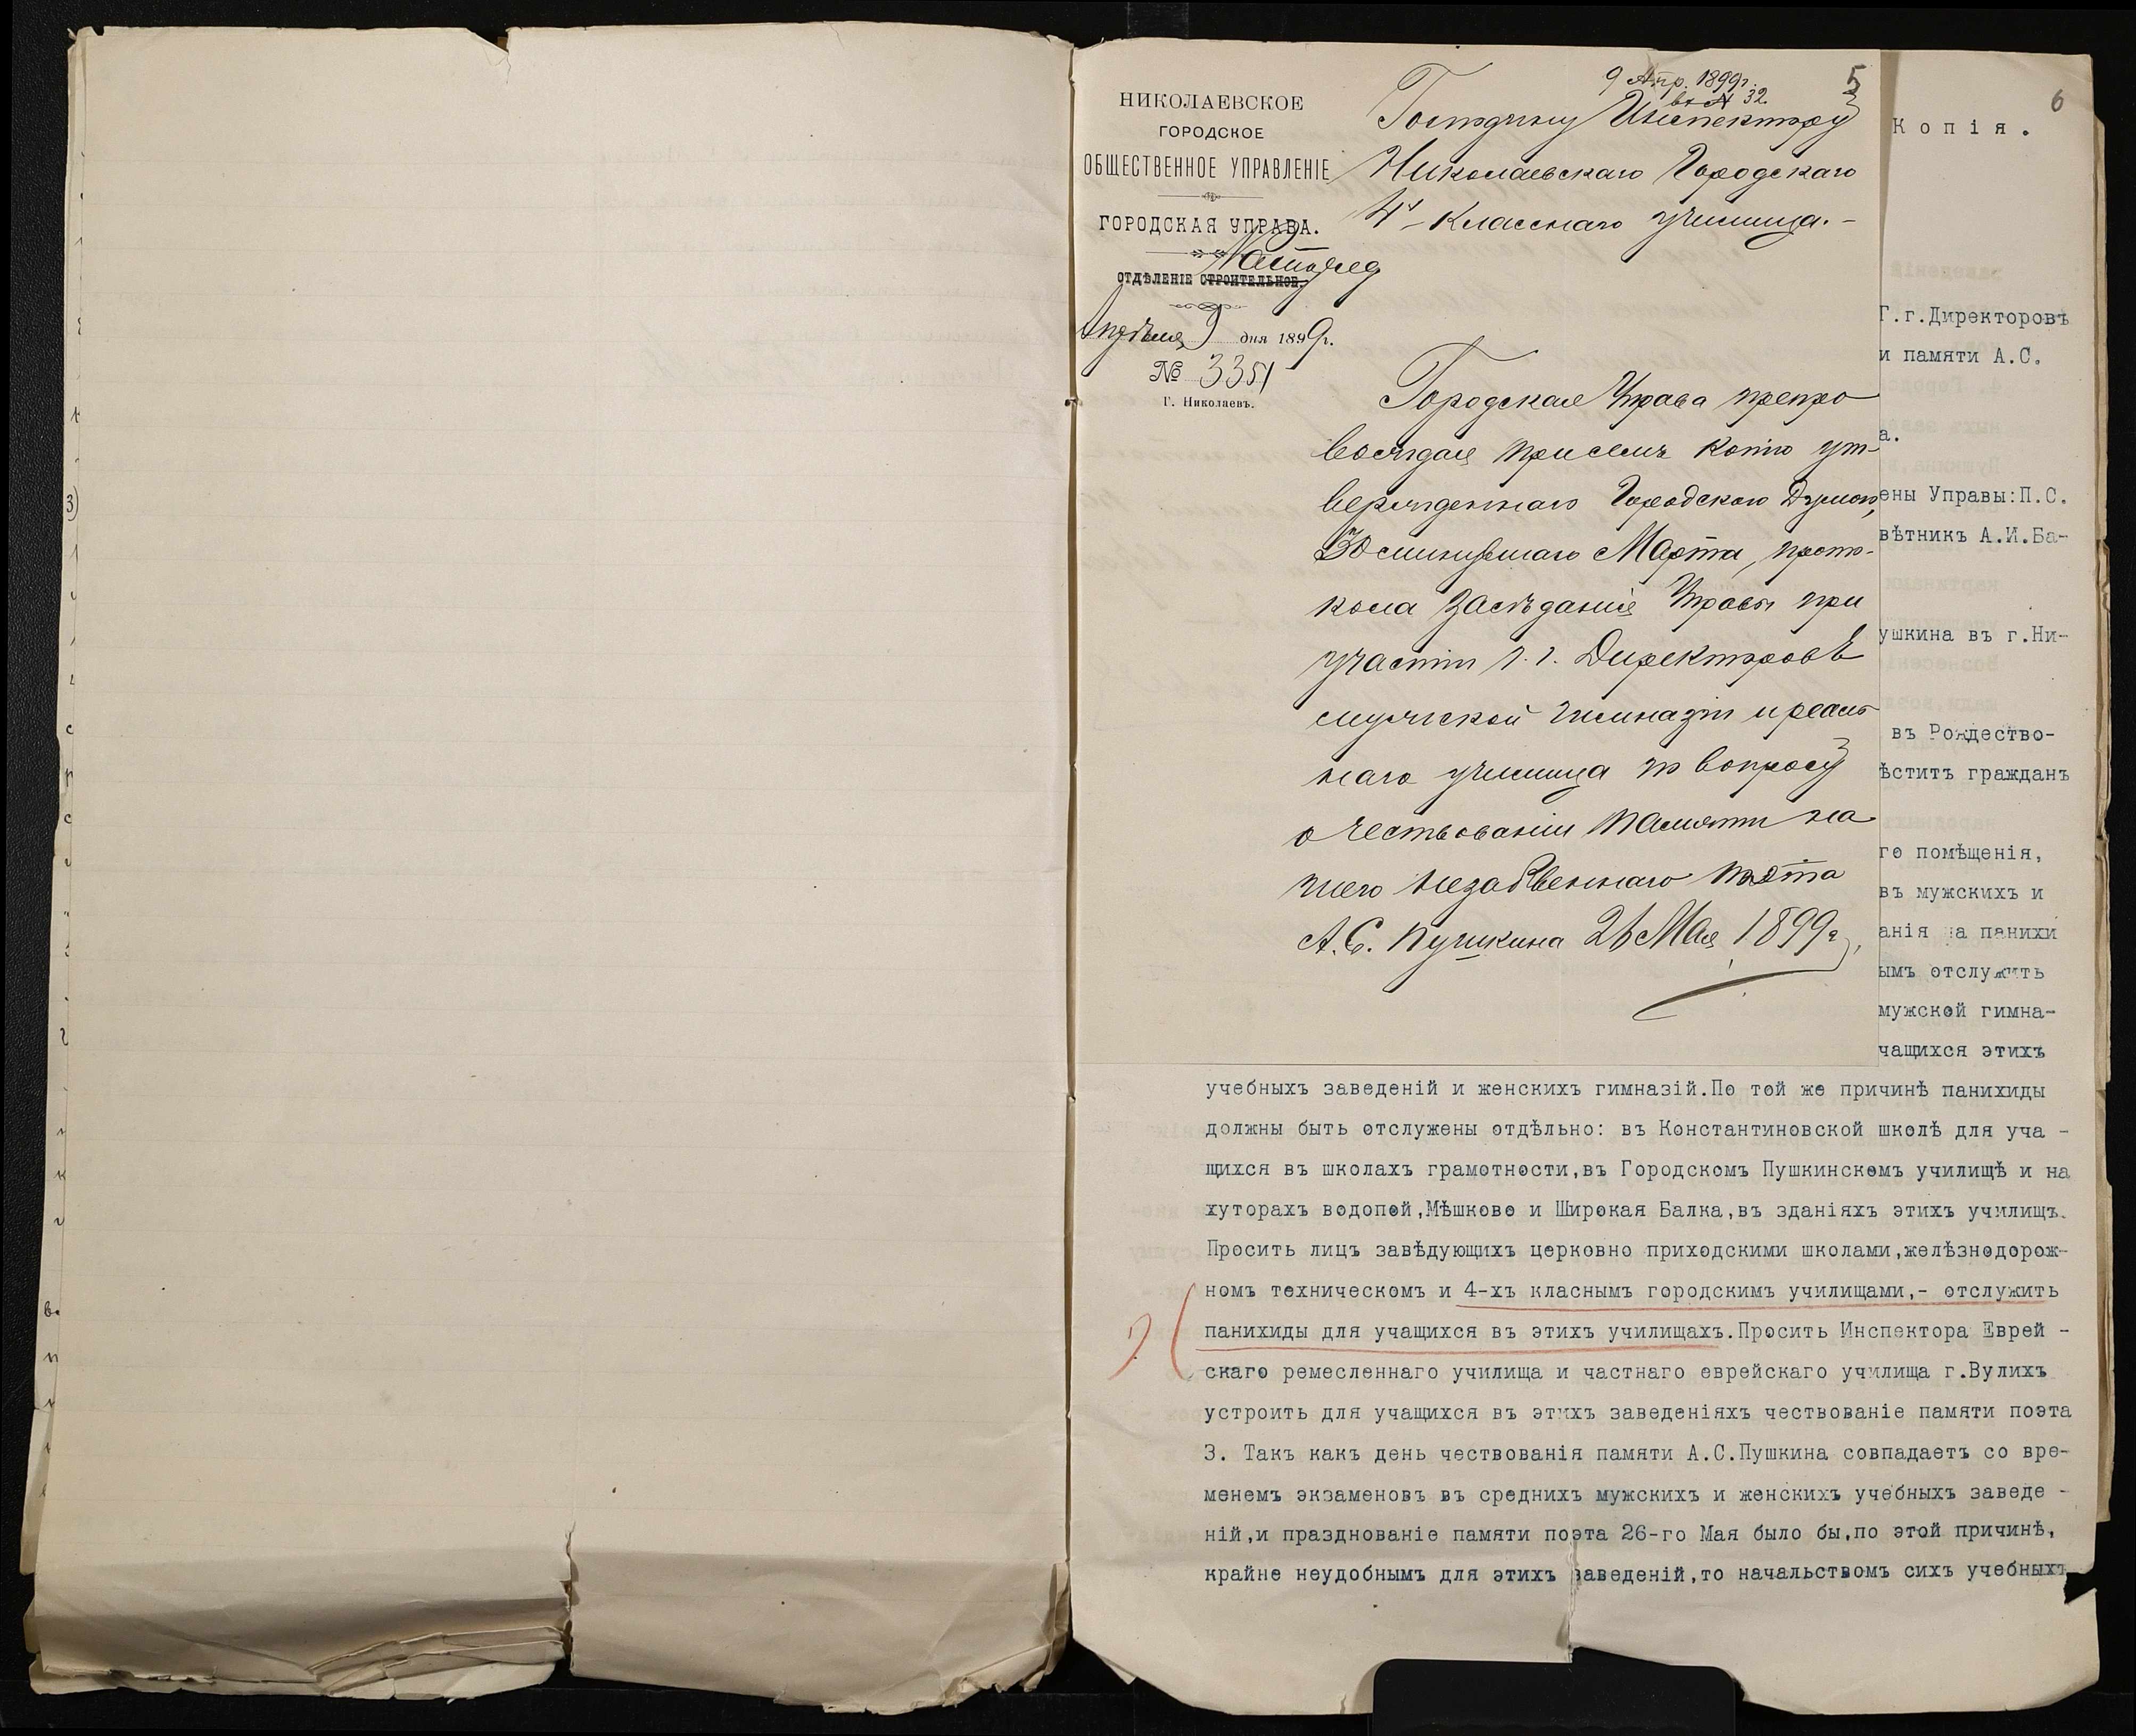 9 Апр. 1899г.
вх № 32
5
НИКОЛАЕВСКОЕ
ГОРОДСКОЕ
ОБЩЕСТВЕННОЕ УПРАВЛЕНІЕ
ГОРОДСКАЯ УПРАВА.
Распоряд
ОТДѢЛЕНІЕ СТРОИТЕЛЬНОЕ.
Апрѣля 9 дня 1899г.
№ 3351
Г. Николаевъ.
Господину Инспектору
Николаевскаго Городскаго
4х-Класснаго училища.-
Городская Управа препро
вождая при семъ копію ут-
вержденнаго Городскою Думою,
30 минувшаго Марта, прото-
кола засѣданія Управы при
участіи г.г. Директоровъ
мужской гимназіи и реаль
наго училища по вопросу
о чествованіи памяти на
шего незабвеннаго поэта
А.С. Пушкина 26 Мая 1899г.,
6
Копія.
Г.г.Директоровъ
и памяти А.С.
а.
ены Управы:П.С.
вѣтникъ А.И.Ба-
ушкина въ г.Ни-
въ Рождество-
ѣститъ гражданъ
го помѣщенія,
въ мужскихъ и
анія на панихи
ымъ отслужить
мужской гимна-
чащихся этихъ
учебныхъ заведеній и женскихъ гимназій.По той же причинѣ панихиды
должны быть отслужены отдѣльно: въ Константиновской школѣ для уча -
щихся въ школахъ грамотности,въ Городскомъ Пушкинскомъ училищѣ и на
хуторахъ водопой,Мѣшково и Широкая Балка,въ зданіяхъ этихъ училищъ.
Просить лицъ завѣдующихъ церковно приходскими школами,желѣзнодорож-
номъ техническомъ и 4-хъ класнымъ городскимъ училищами,- отслужить
панихиды для учащихся въ этихъ училищахъ.Просить Инспектора Еврей -
скаго ремесленнаго училища и частнаго еврейскаго училища г.Вулихъ
устроить для учащихся въ этихъ заведеніяхъ чествованіе памяти поэта
3. Такъ какъ день чествованія памяти А.С.Пушкина совпадаетъ со вре-
менемъ экзаменовъ въ среднихъ мужскихъ и женскихъ учебныхъ заведе -
ній,и празднованіе памяти поэта 26-го Мая было бы,по этой причинѣ,
крайне неудобнымъ для этихъ заведеній,то начальствомъ сихъ учебныхъ